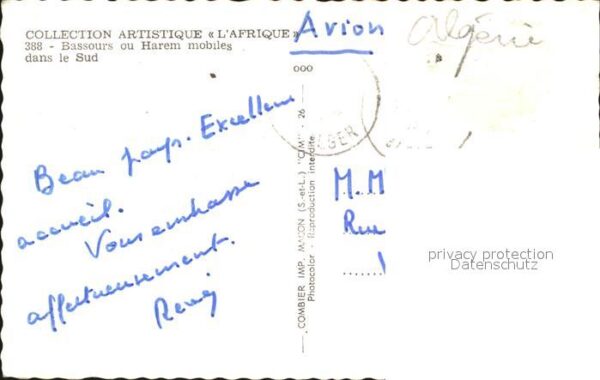 COLLECTION ARTISTIQUE « L'AFRIQUE »
388 - Bassours ou Harem mobiles
dans le Sud
Avion
Algérie
ooo
ALGER
Beau pays. Excellent
accueil.
Vous embrasse
affectueusement.
Rémy
COMBIER IMP. MACON (S.-et-L.) "CIM" - 26
Photocolor - Reproduction interdite
M. M
Rue
1
privacy protection
Datenschutz